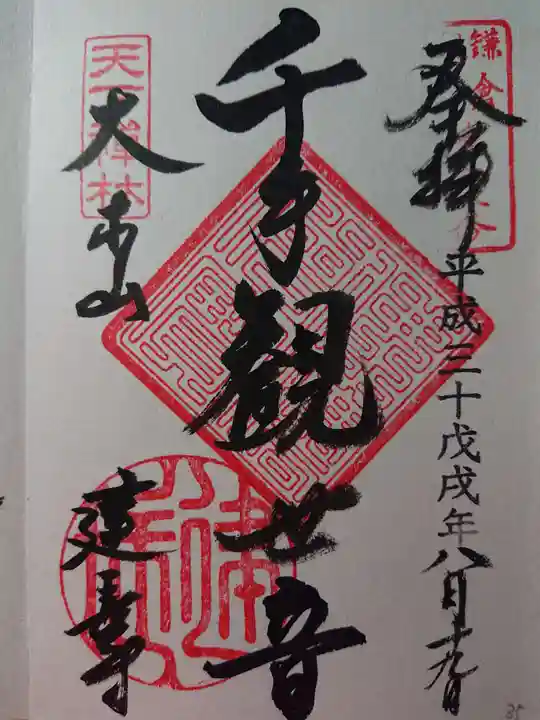 奉拝
平成三十戊戌年八月十九日
千手観世音
大本山
建長寺
天下禅林
鎌倉
35